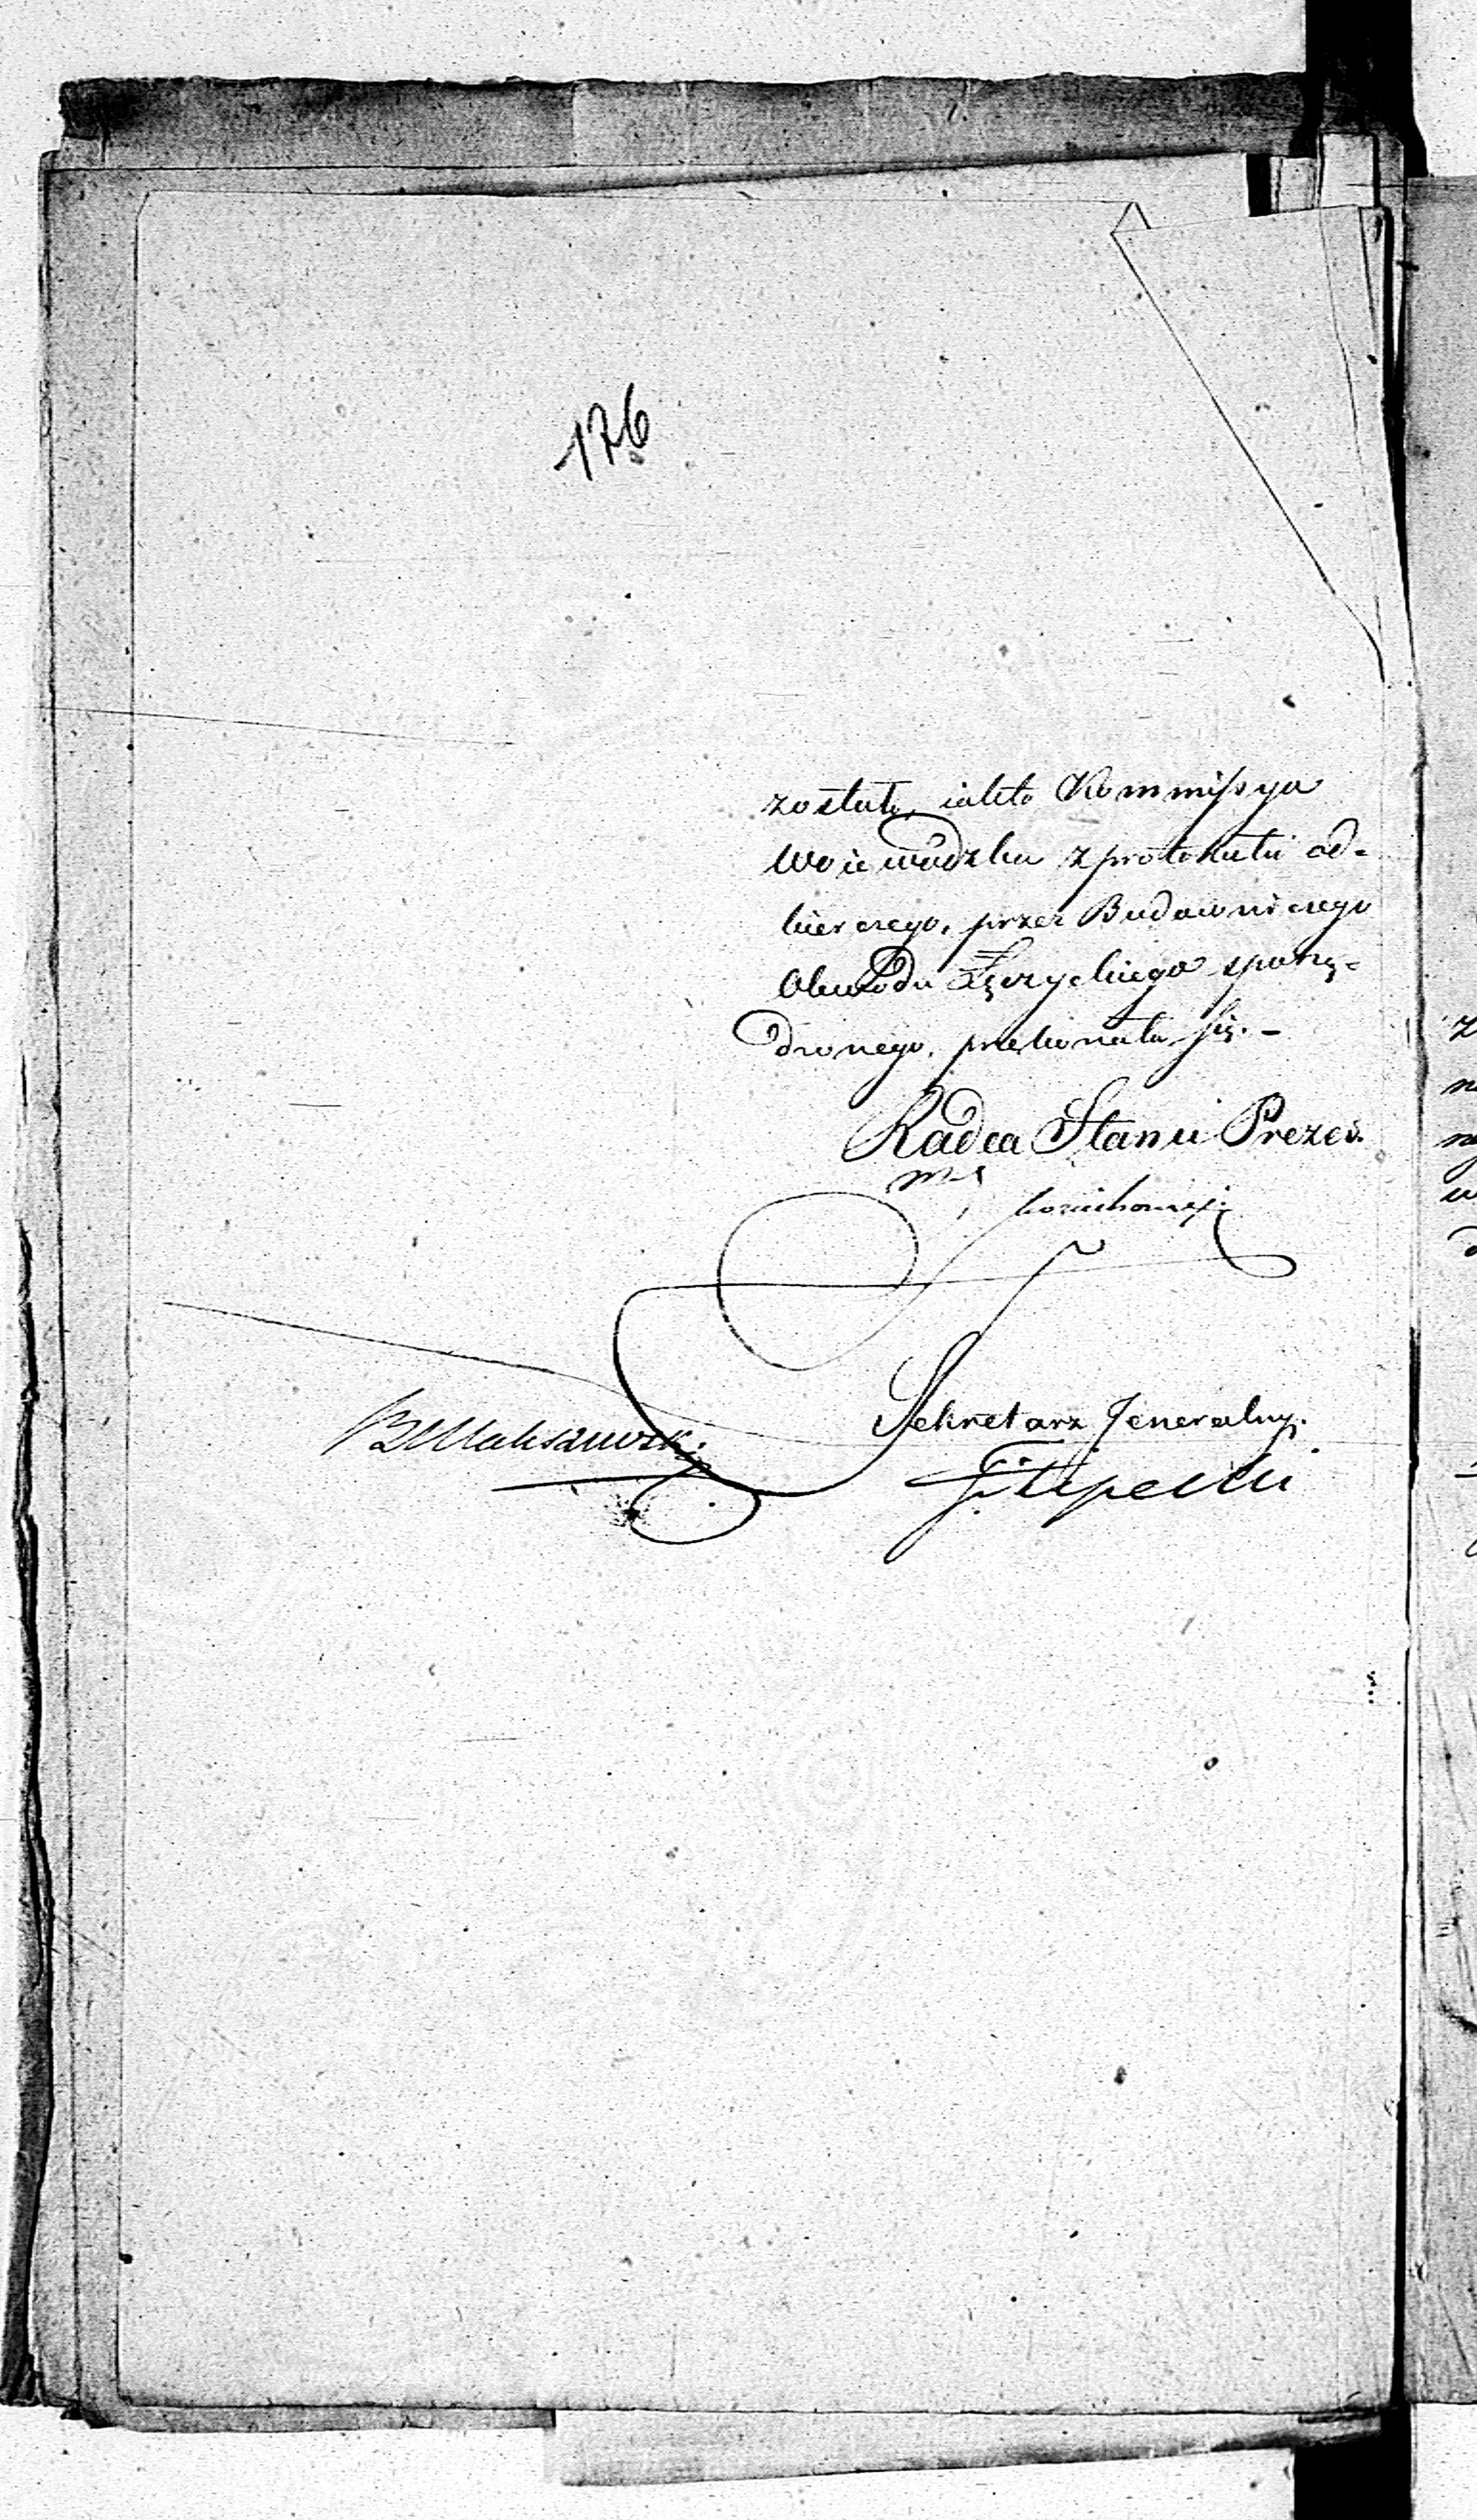 176
zostało, iak to Kommissya
Woiewódzka z protokułu od-
bierczego, przez Budowniczego
Obwodu Łęczyckiego sporzą-
dzonego, przekonała się. -
Radca Stanu Prezes.
Sekretarz Jeneralny.
Filipecki